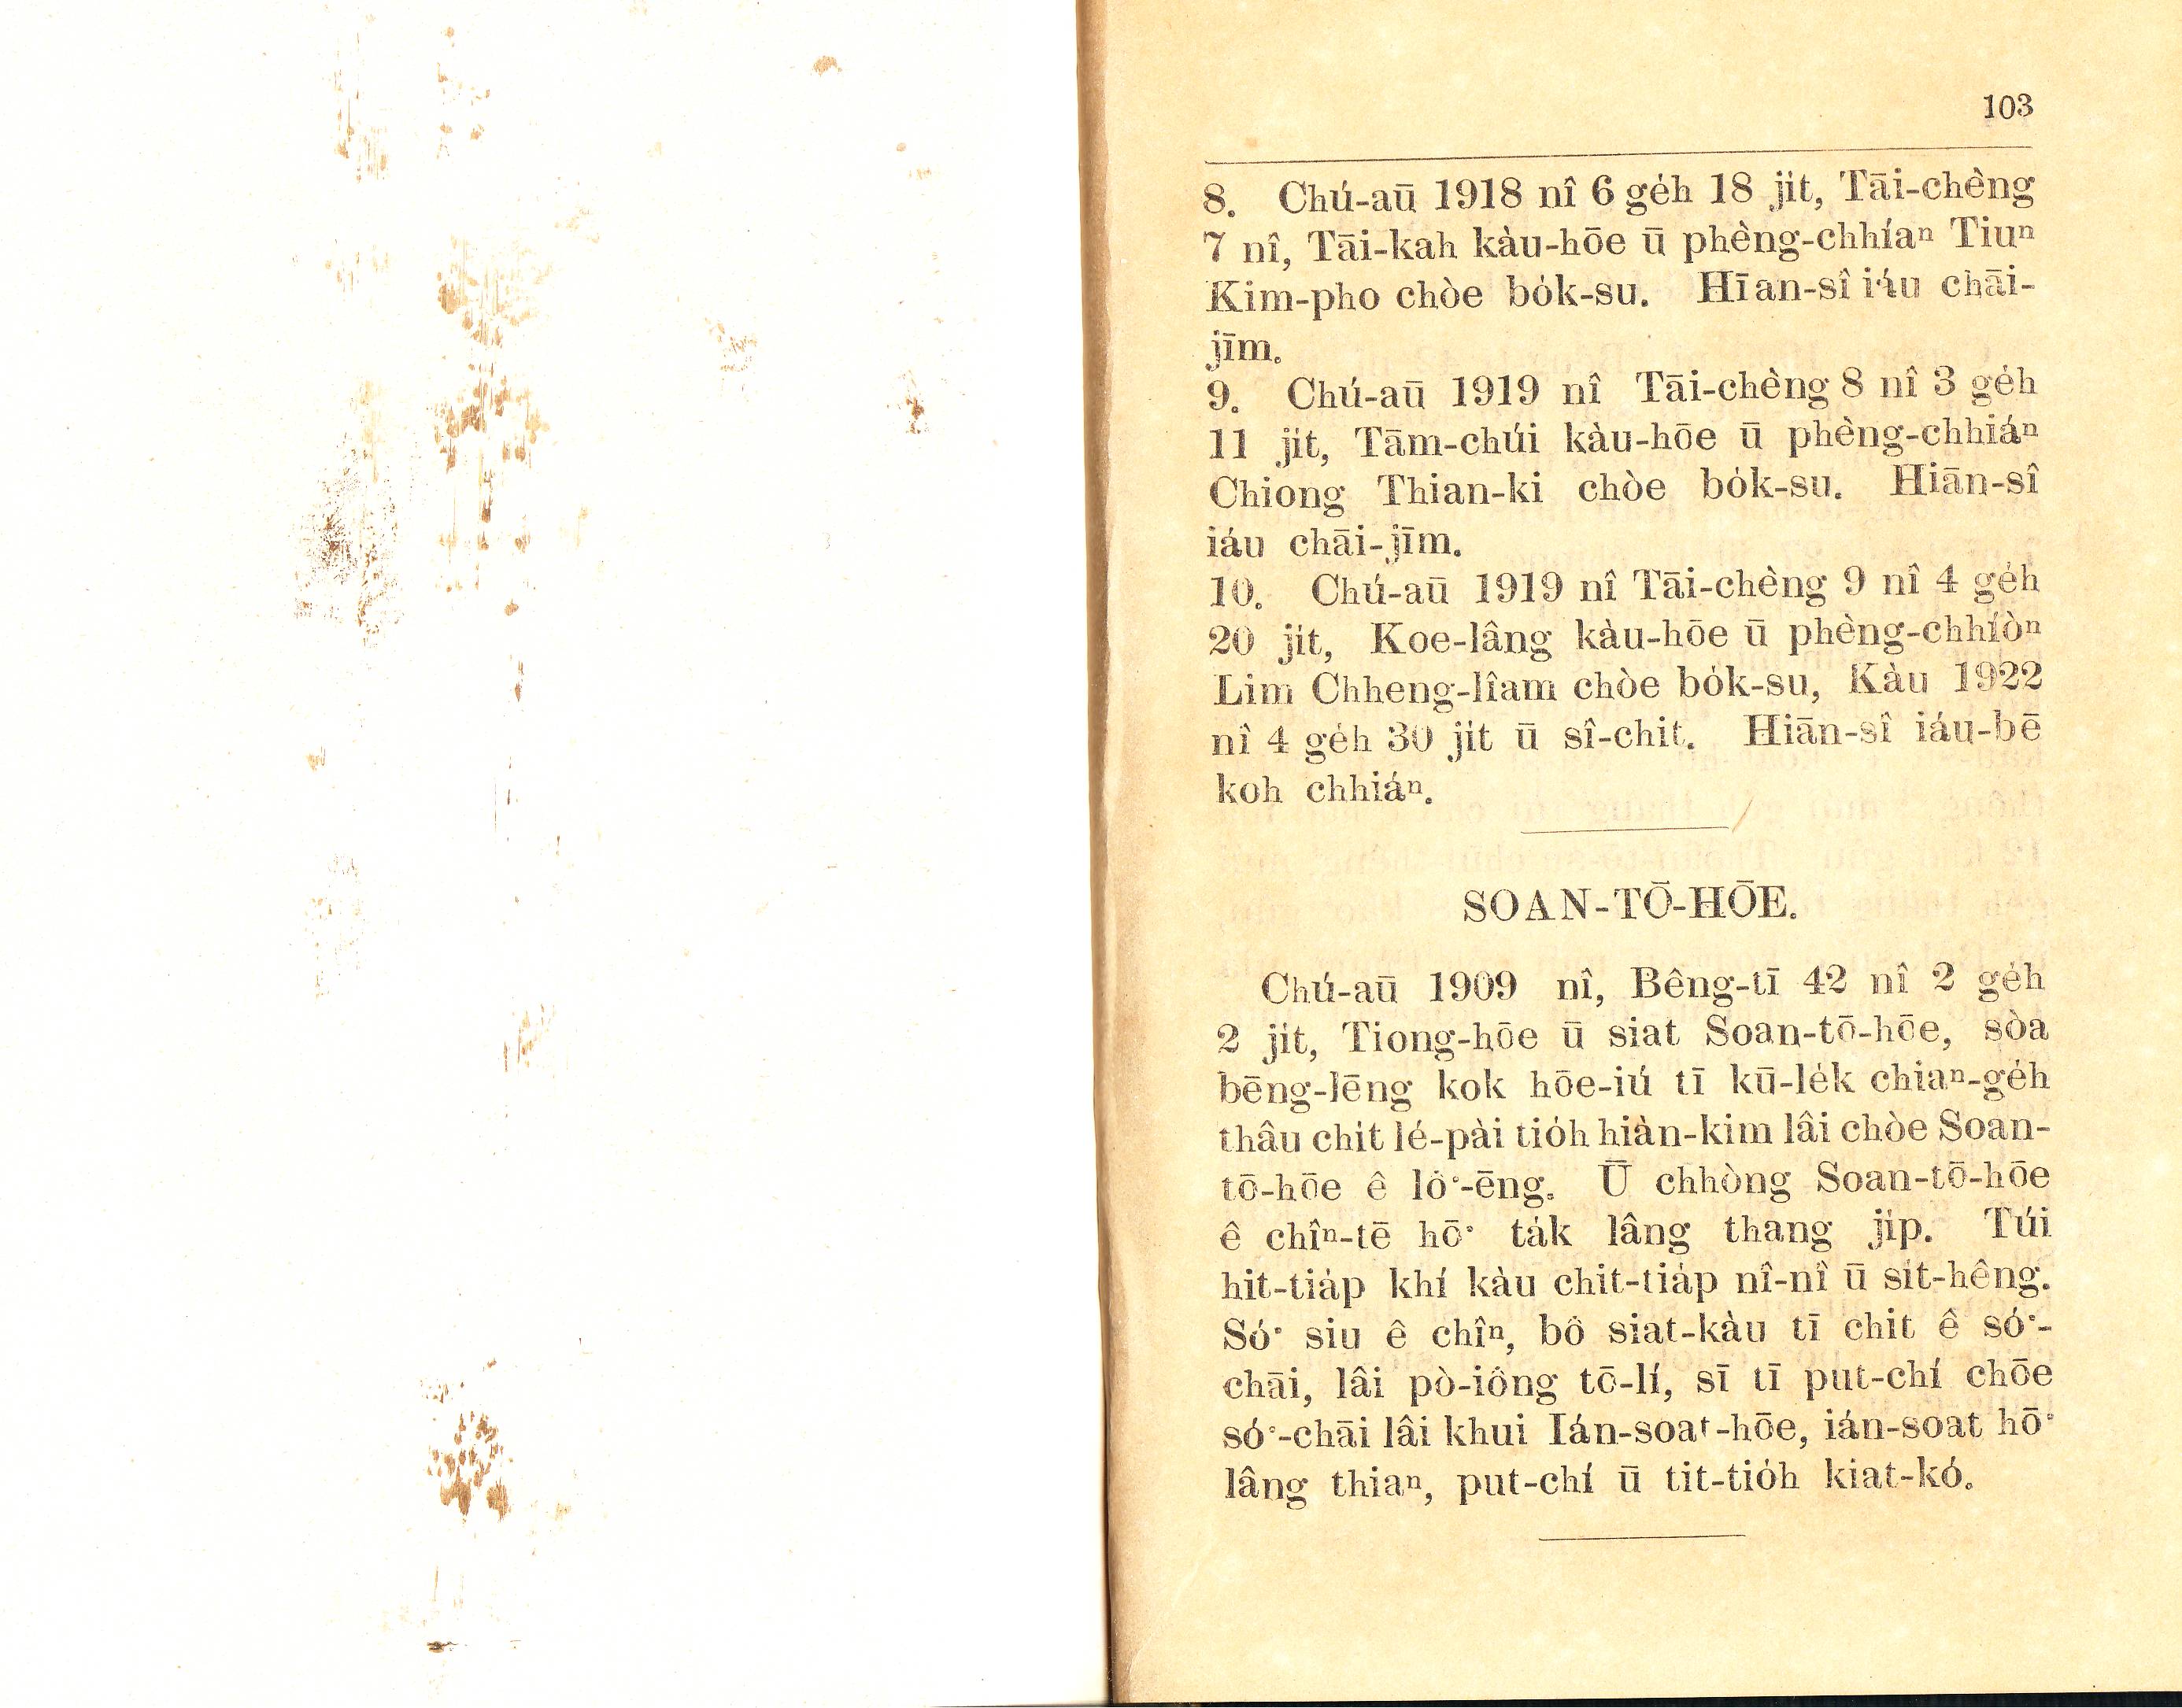 103
8. Chú-aū 1918 nî 6 ge̍h 18 ji̍t, Tāi-chèng
7 nî, Tāi-kah kàu-hōe ū phèng-chhíaⁿ Tiuⁿ
Kim-pho chòe bo̍k-su. Hīan-sî iáu chāi-
jīm.
9. Chú-aū 1919 nî Tāi-chèng 8 nî 3 ge̍h
11 ji̍t, Tām-chúi kàu-hōe ū phèng-chhiáⁿ
Chiong Thian-ki chòe bo̍k-su. Hiān-sî
iáu chāi-jīm.
10. Chú-aū 1919 nî Tāi-chèng 9 nî 4 ge̍h
20 ji̍t, Koe-lâng kàu-hōe ū phèng-chhíòⁿ
Lim Chheng-lîam chòe bo̍k-su, Kàu 1922
nî 4 ge̍h 30 ji̍t ū sî-chit. Hiān-sî iáu-bē
koh chhiáⁿ.
SOAN-TŌ-HŌE.
Chú-aū 1909 nî, Bêng-tī 42 nî 2 ge̍h
2 ji̍t, Tiong-hōe ū siat Soan-tō-hōe, sòa
bēng-lēng kok hōe-iú tī kū-le̍k chiaⁿ-ge̍h
thâu chi̍t lé-pài tio̍h hiàn-kim lâi chòe Soan-
tō-hōe ê lō͘-ēng. Ū chhòng Soan-tō-hōe
ê chîⁿ-tē hō͘ ta̍k lâng thang ji̍p. Túi
hit-tia̍p khí kàu chit-tia̍p nî-nî ū si̍t-hêng.
Só͘ siu ê chîⁿ, bô siat-kàu tī chit ê só͘-
chāi, lâi pò-iông tō-lí, sī tī put-chí chōe
só͘-chāi lâi khui Ián-soat-hōe, ián-soat hō͘
lâng thiaⁿ, put-chí ū tit-tio̍h kiat-kó.